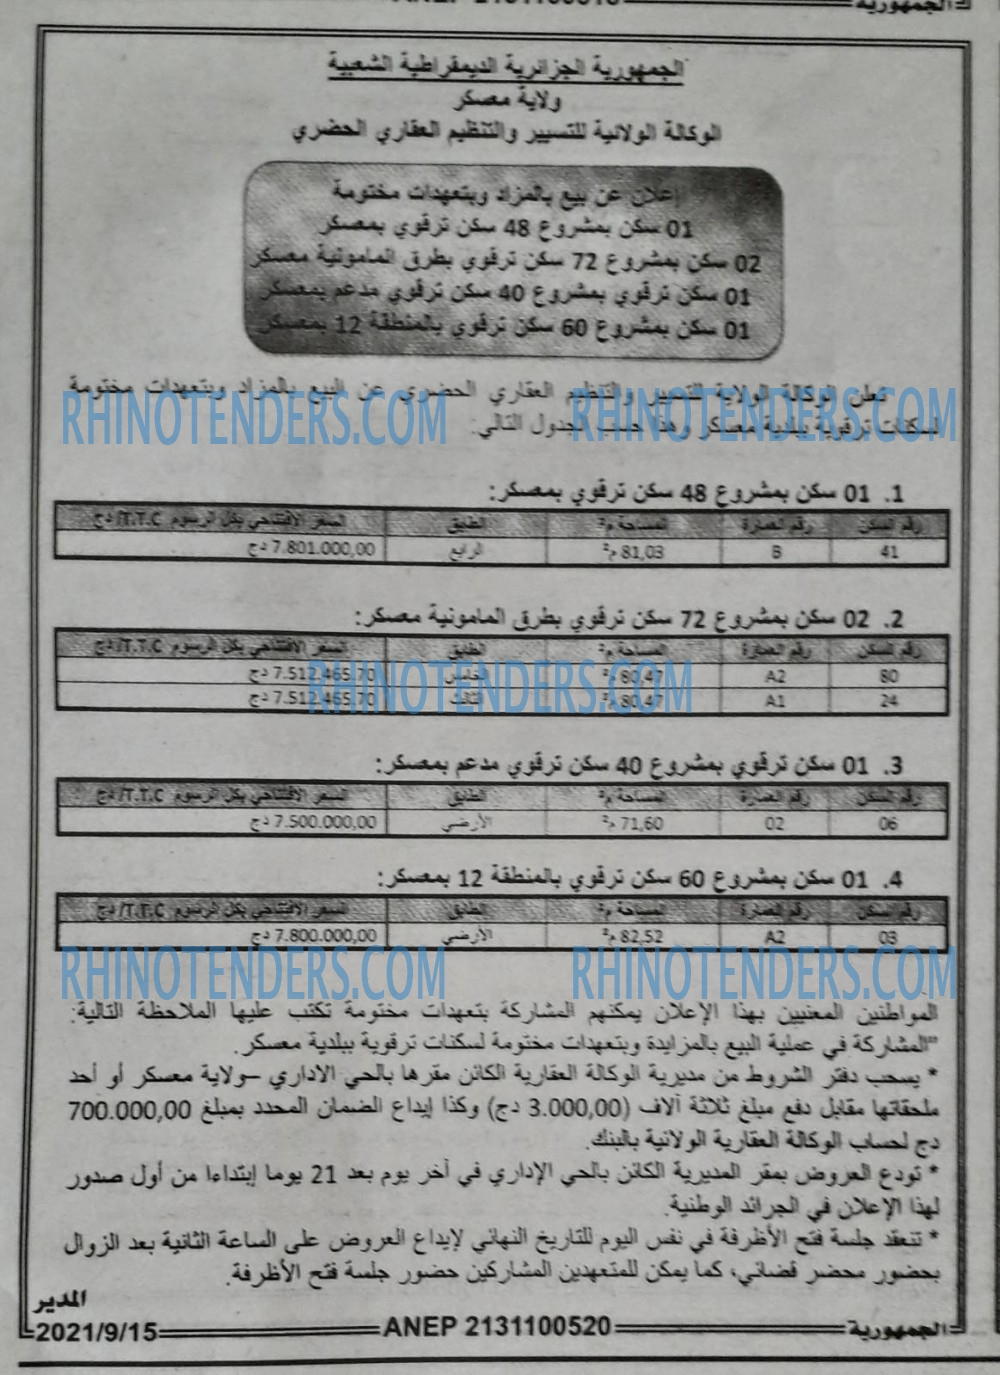 ANEP
الجمهورية
الجمهورية الجزائرية الديمقراطية الشعبية
ولاية معسكر
الوكالة الولائية للتسيير والتنظيم العقاري الحضري
إعلان عن بيع بالمزاد وبتعهدات مختومة
01 سكن بمشروع 48 سكن ترقوي بمعسكر
02 سكن بمشروع 72 سكن ترقوي بطرق المامونية معسكر
01 سكن ترقوي بمشروع 40 سكن ترقوي مدعم بمعسكر
01 سكن بمشروع 60 سكن ترقوي بالمنطقة 12 بمعسكر
تعلن الوكالة الولاية للتسيير والتنظيم العقاري الحضري عن البيع بالمزاد وبتعهدات مختومة
لسكنات ترقوية ببلدية معسكر وهذا حسب الجدول التالي:
RHINOTENDERS.COM RHINOTENDERS.COM
1. 01 سكن بمشروع 48 سكن ترقوي بمعسكر:
رقم السكن رقم العمارة المساحة م² الطابق السعر الافتتاحي بكل الرسوم T.T.C/ دج
41 B 81,03 م² الرابع 7.801.000,00 دج
2. 02 سكن بمشروع 72 سكن ترقوي بطرق المامونية معسكر:
رقم السكن رقم العمارة المساحة م² الطابق السعر الافتتاحي بكل الرسوم T.T.C/ دج
80 A2 80,47 م² الخامس 7.512.465.70 دج
24 A1 80,47 م² الثالث 7.512.465.70 دج
RHINOTENDERS.COM
3. 01 سكن ترقوي بمشروع 40 سكن ترقوي مدعم بمعسكر:
رقم السكن رقم العمارة المساحة م² الطابق السعر الافتتاحي بكل الرسوم T.T.C/ دج
06 02 71,60 م² الأرضي 7.500.000,00 دج
4. 01 سكن بمشروع 60 سكن ترقوي بالمنطقة 12 بمعسكر:
رقم السكن رقم العمارة المساحة م² الطابق السعر الافتتاحي بكل الرسوم T.T.C/ دج
03 A2 82,52 م² الأرضي 7.800.000,00 دج
RHINOTENDERS.COM RHINOTENDERS.COM
المواطنين المعنيين بهذا الإعلان يمكنهم المشاركة بتعهدات مختومة تكتب عليها الملاحظة التالية:
"المشاركة في عملية البيع بالمزايدة وبتعهدات مختومة لسكنات ترقوية ببلدية معسكر.
* يسحب دفتر الشروط من مديرية الوكالة العقارية الكائن مقرها بالحي الاداري –ولاية معسكر أو أحد
ملحقاتها مقابل دفع مبلغ ثلاثة آلاف (3.000,00 دج) وكذا إيداع الضمان المحدد بمبلغ 700.000,00
دج لحساب الوكالة العقارية الولائية بالبنك.
* تودع العروض بمقر المديرية الكائن بالحي الإداري في آخر يوم بعد 21 يوما إبتداءا من أول صدور
لهذا الإعلان في الجرائد الوطنية.
* تنعقد جلسة فتح الأظرفة في نفس اليوم للتاريخ النهائي لإيداع العروض على الساعة الثانية بعد الزوال
بحضور محضر قضائي، كما يمكن للمتعهدين المشاركين حضور جلسة فتح الأظرفة.
المدير
الجمهورية ANEP 2131100520 2021/9/15